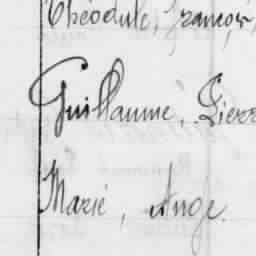 Théodule, François,
Guillaume, Pierr
Marie, Ange.